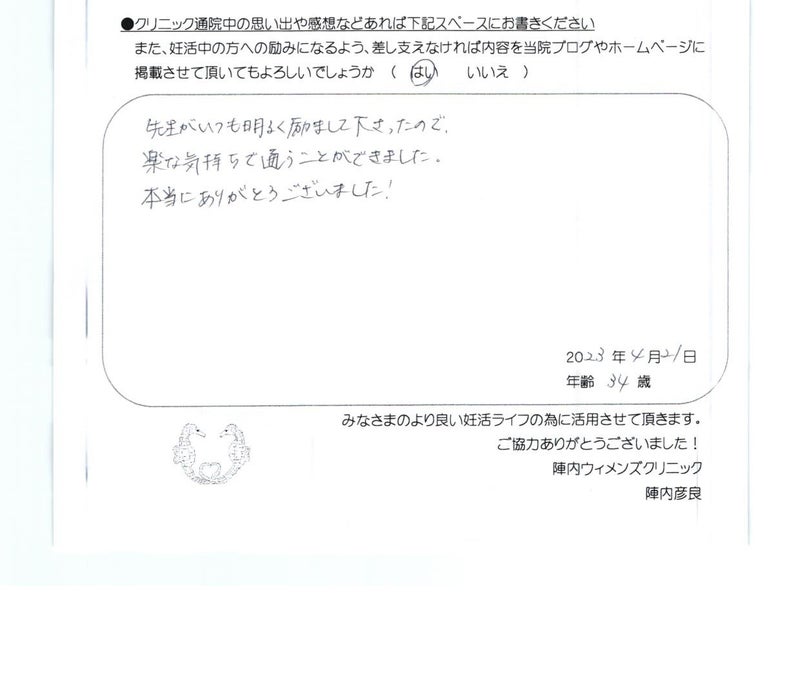 ●クリニック通院中の思い出や感想などあれば下記スペースにお書きください
また、妊活中の方への励みになるよう、差し支えなければ内容を当院ブログやホームページに
掲載させて頂いてもよろしいでしょうか （ はい　いいえ ）
先生がいつも明るく励まして下さったので、
楽な気持ちで通うことができました。
本当にありがとうございました!
2023 年 4 月 21 日
年齢 34 歳
みなさまのより良い妊活ライフの為に活用させて頂きます。
ご協力ありがとうございました！
陣内ウィメンズクリニック
陣内彦良